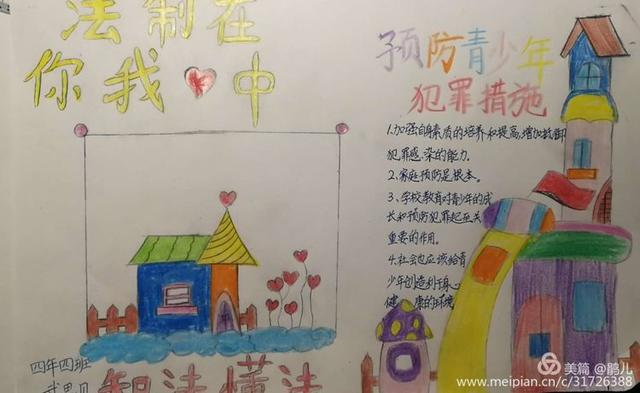 法制在
你我中
预防青少年
犯罪措施
1.加强自身素质的培养和提高,增加抵御
犯罪感染的能力.
2、家庭预防是根本.
3、学校教育对青少年的成
长和预防犯罪起至关
重要的作用.
4.社会也应该给青
少年创造利于身心
健康的环境
四年四班
知法懂法
美篇 @鹃儿
www.meipian.cn/c/31726388